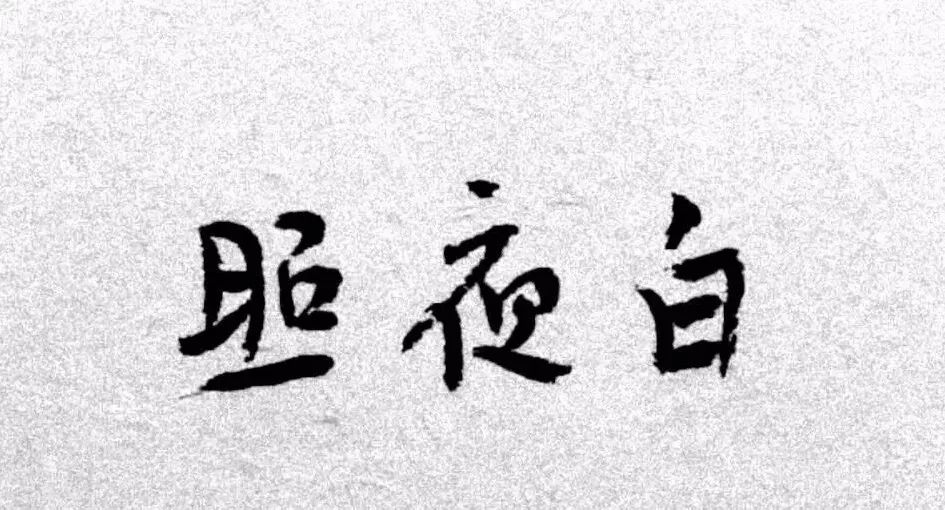 照夜白